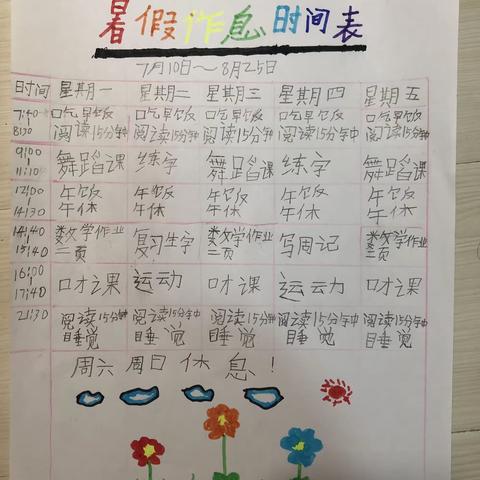 暑假作息时间表
7月10日～8月25日
日时间 星期一 星期二 星期三 星期四 星期五
7:40 8:30 吃早饭 吃早饭 吃早饭 吃早饭 吃早饭
阅读15分钟 阅读15分钟 阅读15分钟 阅读15分钟 阅读15分钟
9:00 11:10 舞蹈课 练字 舞蹈课 练字 舞蹈课
12:00 14:30 午饭 午饭 午饭 午饭 午饭
午休 午休 午休 午休 午休
14:40 15:40 数学作业 复习生字 数学作业 写周记 数学作业
二页 二页 二页
16:00 17:40 口才课 运动 口才课 运动 口才课
21:30 阅读15分钟 阅读15分钟 阅读15分钟 阅读15分钟 阅读15分钟
睡觉 睡觉 睡觉 睡觉 睡觉
周六周日休息！